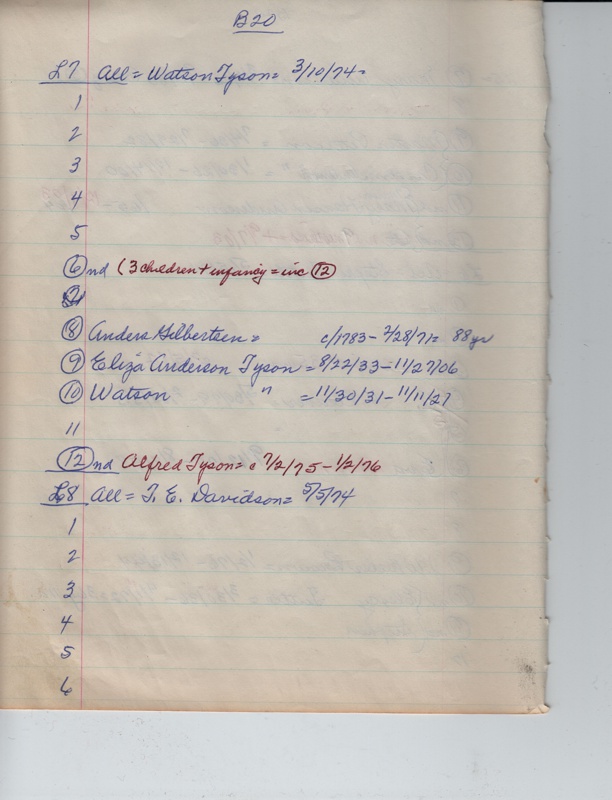 B20
L7 All = Watson Tyson = 3/10/74 =
1
2
3
4
5
6 nd (3 children + infancy = inc 12
7
8 Anders Gilbertsen = c/1783 - 2/28/71 = 88 yr
9 Eliza Anderson Tyson = 8/22/33 - 11/27/06
10 Watson " = 11/30/31 - 11/11/27
11
12 nd Alfred Tyson = c 7/2/75 - 1/2/76
L8 All = T. E. Davidson = 5/5/74
1
2
3
4
5
6